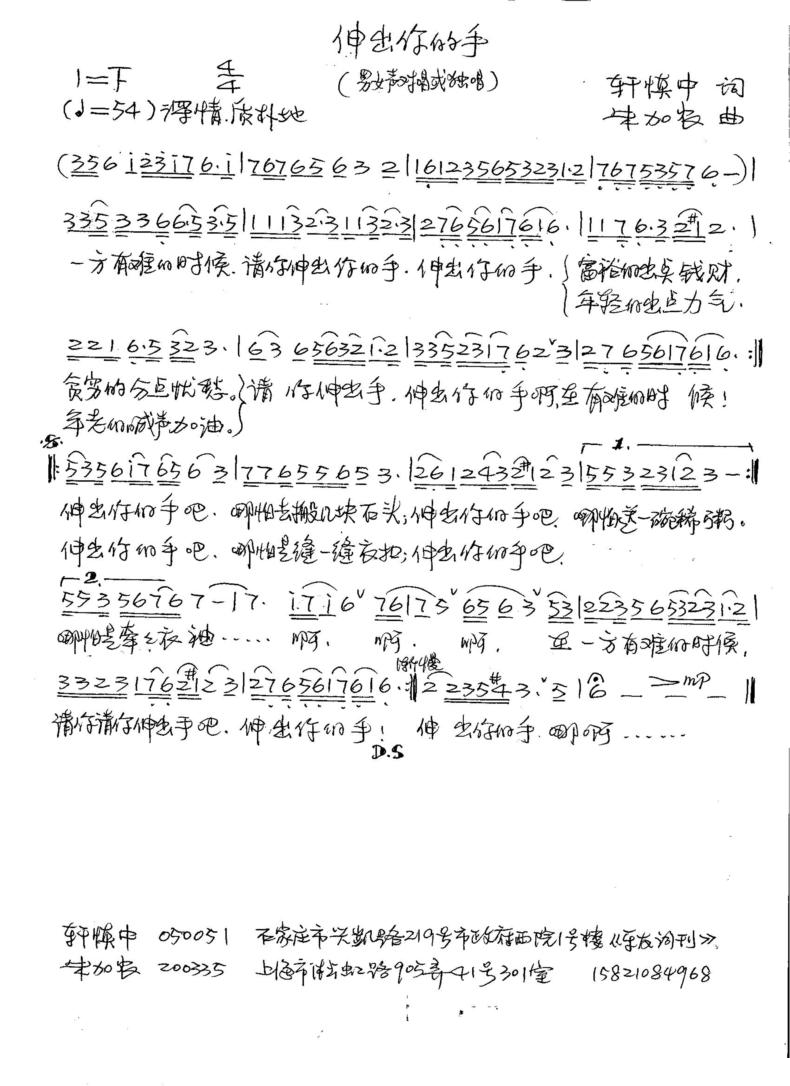 伸出你的手
1=F 4/4 (男女声对唱或独唱) 轩慎中 词
(♩=54)深情.质朴地 朱加农 曲
(356 i23i76·i|7676563 2|1612356532 31·2|767535 76-)|
335336 6·53·5|11132·31132·3|27656176 16·|1176·32#12·|
一方有难的时候.请你伸出你的手.伸出你的手.{富裕的出点钱财.
年轻的出点力气.
2216·5323·|63 656321·2|335231762ˇ3|2765617616·:||
贫穷的分点忧愁。}请 你伸出手.伸出你的手啊,在有难的时 候!
年老的喊声加油。
||:535617656 3|77655653·|261243 2#12 3|55323123-:||
伸出你的手吧.哪怕去搬几块石头;伸出你的手吧.哪怕送一碗稀粥。
伸出你的手吧.哪怕是缝一缝衣扣;伸出你的手吧.
1.
2.
553 5676 7-|7· i·7i6ˇ 7617 5ˇ 656 3ˇ 53|22356532 31·2|
哪怕是牵牵衣袖…… 啊. 啊. 啊. 在一方有难的时候,
渐慢
3323176 2#12 3|276561761 6·:||2 235#43·ˇ5|6 - > mp - ||
请你请你伸出手吧.伸出你的手! 伸 出你的手.哪啊……
D.S
轩慎中 050051 石家庄市兴凯路219号市政府西院1号楼《东友词刊》.
朱加农 200335 上海市 二路905弄41号301室 15821084968